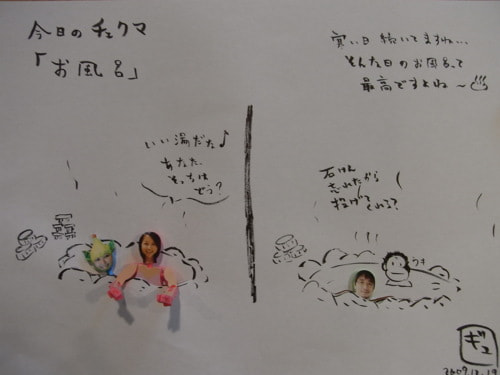 今日のチェクマ
「お風呂」
寒い日続いてますね…
そんな日のお風呂って
最高ですよね〜♨
いい湯だな♪
あなた、
そっちは
どう?
石けん
忘れたから
投げて
くれる?
うき
ギュ
2009.12.19